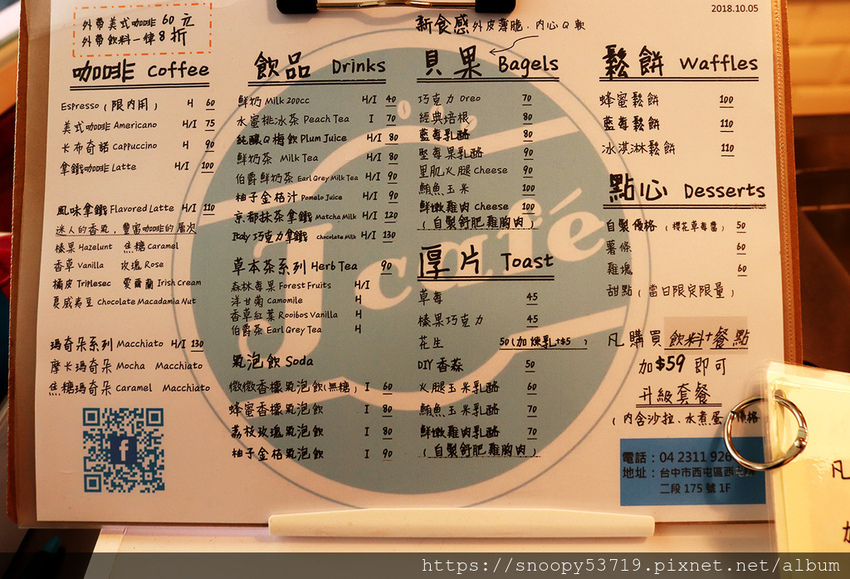 2018.10.05
外帶美式咖啡 60 元
外帶飲料一律 8 折
咖啡 Coffee
Espresso (限內用) H 60
美式咖啡 Americano H/I 75
卡布奇諾 Cappuccino H 90
拿鐵咖啡 Latte H/I 100
風味拿鐵 Flavored Latte H/I 110
迷人的香氣,豐富咖啡的層次
榛果 Hazelunt 焦糖 Caramel
香草 Vanilla 玫瑰 Rose
橘皮 Triplesec 愛爾蘭 Irish Cream
夏威夷豆 Chocolate Macadamia Nut
瑪奇朵系列 Macchiato H/I 130
摩卡瑪奇朵 Mocha Macchiato
焦糖瑪奇朵 Caramel Macchiato
飲品 Drinks
鮮奶 Milk 200cc H/I 40
水蜜桃冰茶 Peach Tea I 70
純釀Q梅飲 Plum Juice H/I 80
鮮奶茶 Milk Tea H/I 80
伯爵鮮奶茶 Earl Grey Milk Tea H/I 90
柚子金桔汁 Pomelo Juice H/I 90
京都抹茶拿鐵 Matcha Milk H/I 120
Italy 巧克力拿鐵 Chocolate Milk H/I 130
草本茶系列 Herb Tea 90
森林莓果 Forest Fruits H/I
洋甘菊 Camomile H
香草紅葉 Rooibos Vanilla H
伯爵茶 Earl Grey Tea H
氣泡飲 Soda
微微香檬氣泡飲(無糖) I 60
蜂蜜香檬氣泡飲 I 80
荔枝玫瑰氣泡飲 I 80
柚子金桔氣泡飲 I 90
新食感 外皮薄脆.內心Q軟
貝果 Bagels
巧克力 Oreo 70
經典培根 80
藍莓乳酪 80
堅果乳酪 80
里肌火腿 Cheese 90
鮪魚玉米 100
鮮嫩雞肉 Cheese 100
(自製舒肥雞胸肉)
厚片 Toast
草莓 45
榛果巧克力 45
花生 50 (加煉乳+$5)
DIY 香蒜 50
火腿玉米乳酪 60
鮪魚玉米乳酪 70
鮮嫩雞肉乳酪 70
(自製舒肥雞胸肉)
鬆餅 Waffles
蜂蜜鬆餅 100
藍莓鬆餅 110
冰淇淋鬆餅 110
點心 Desserts
自製優格 50
薯條 60
雞塊 60
甜點 (當日限定限量)
凡購買飲料+餐點
加$59 即可
升級套餐
(內含沙拉.水煮蛋
電話:04 2311 926
地址:台中市西屯區西
二段 175 號 1F
凡
https://snoopy53719.pixnet.net/album